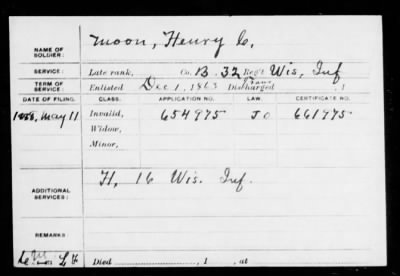 NAME OF SOLDIER: Moon, Henry C.
SERVICE: Late rank, Co. B. 32 Reg't Wis. Inf
TERM OF SERVICE: Enlisted Dec 1, 1863 Trans Discharged , 1
DATE OF FILING. CLASS. APPLICATION NO. LAW. CERTIFICATE NO.
1888, May 11 Invalid, 654975 J O 661975
Widow,
Minor,
ADDITIONAL SERVICES: H, 16 Wis. Inf.
REMARKS:
Died , 1 , at